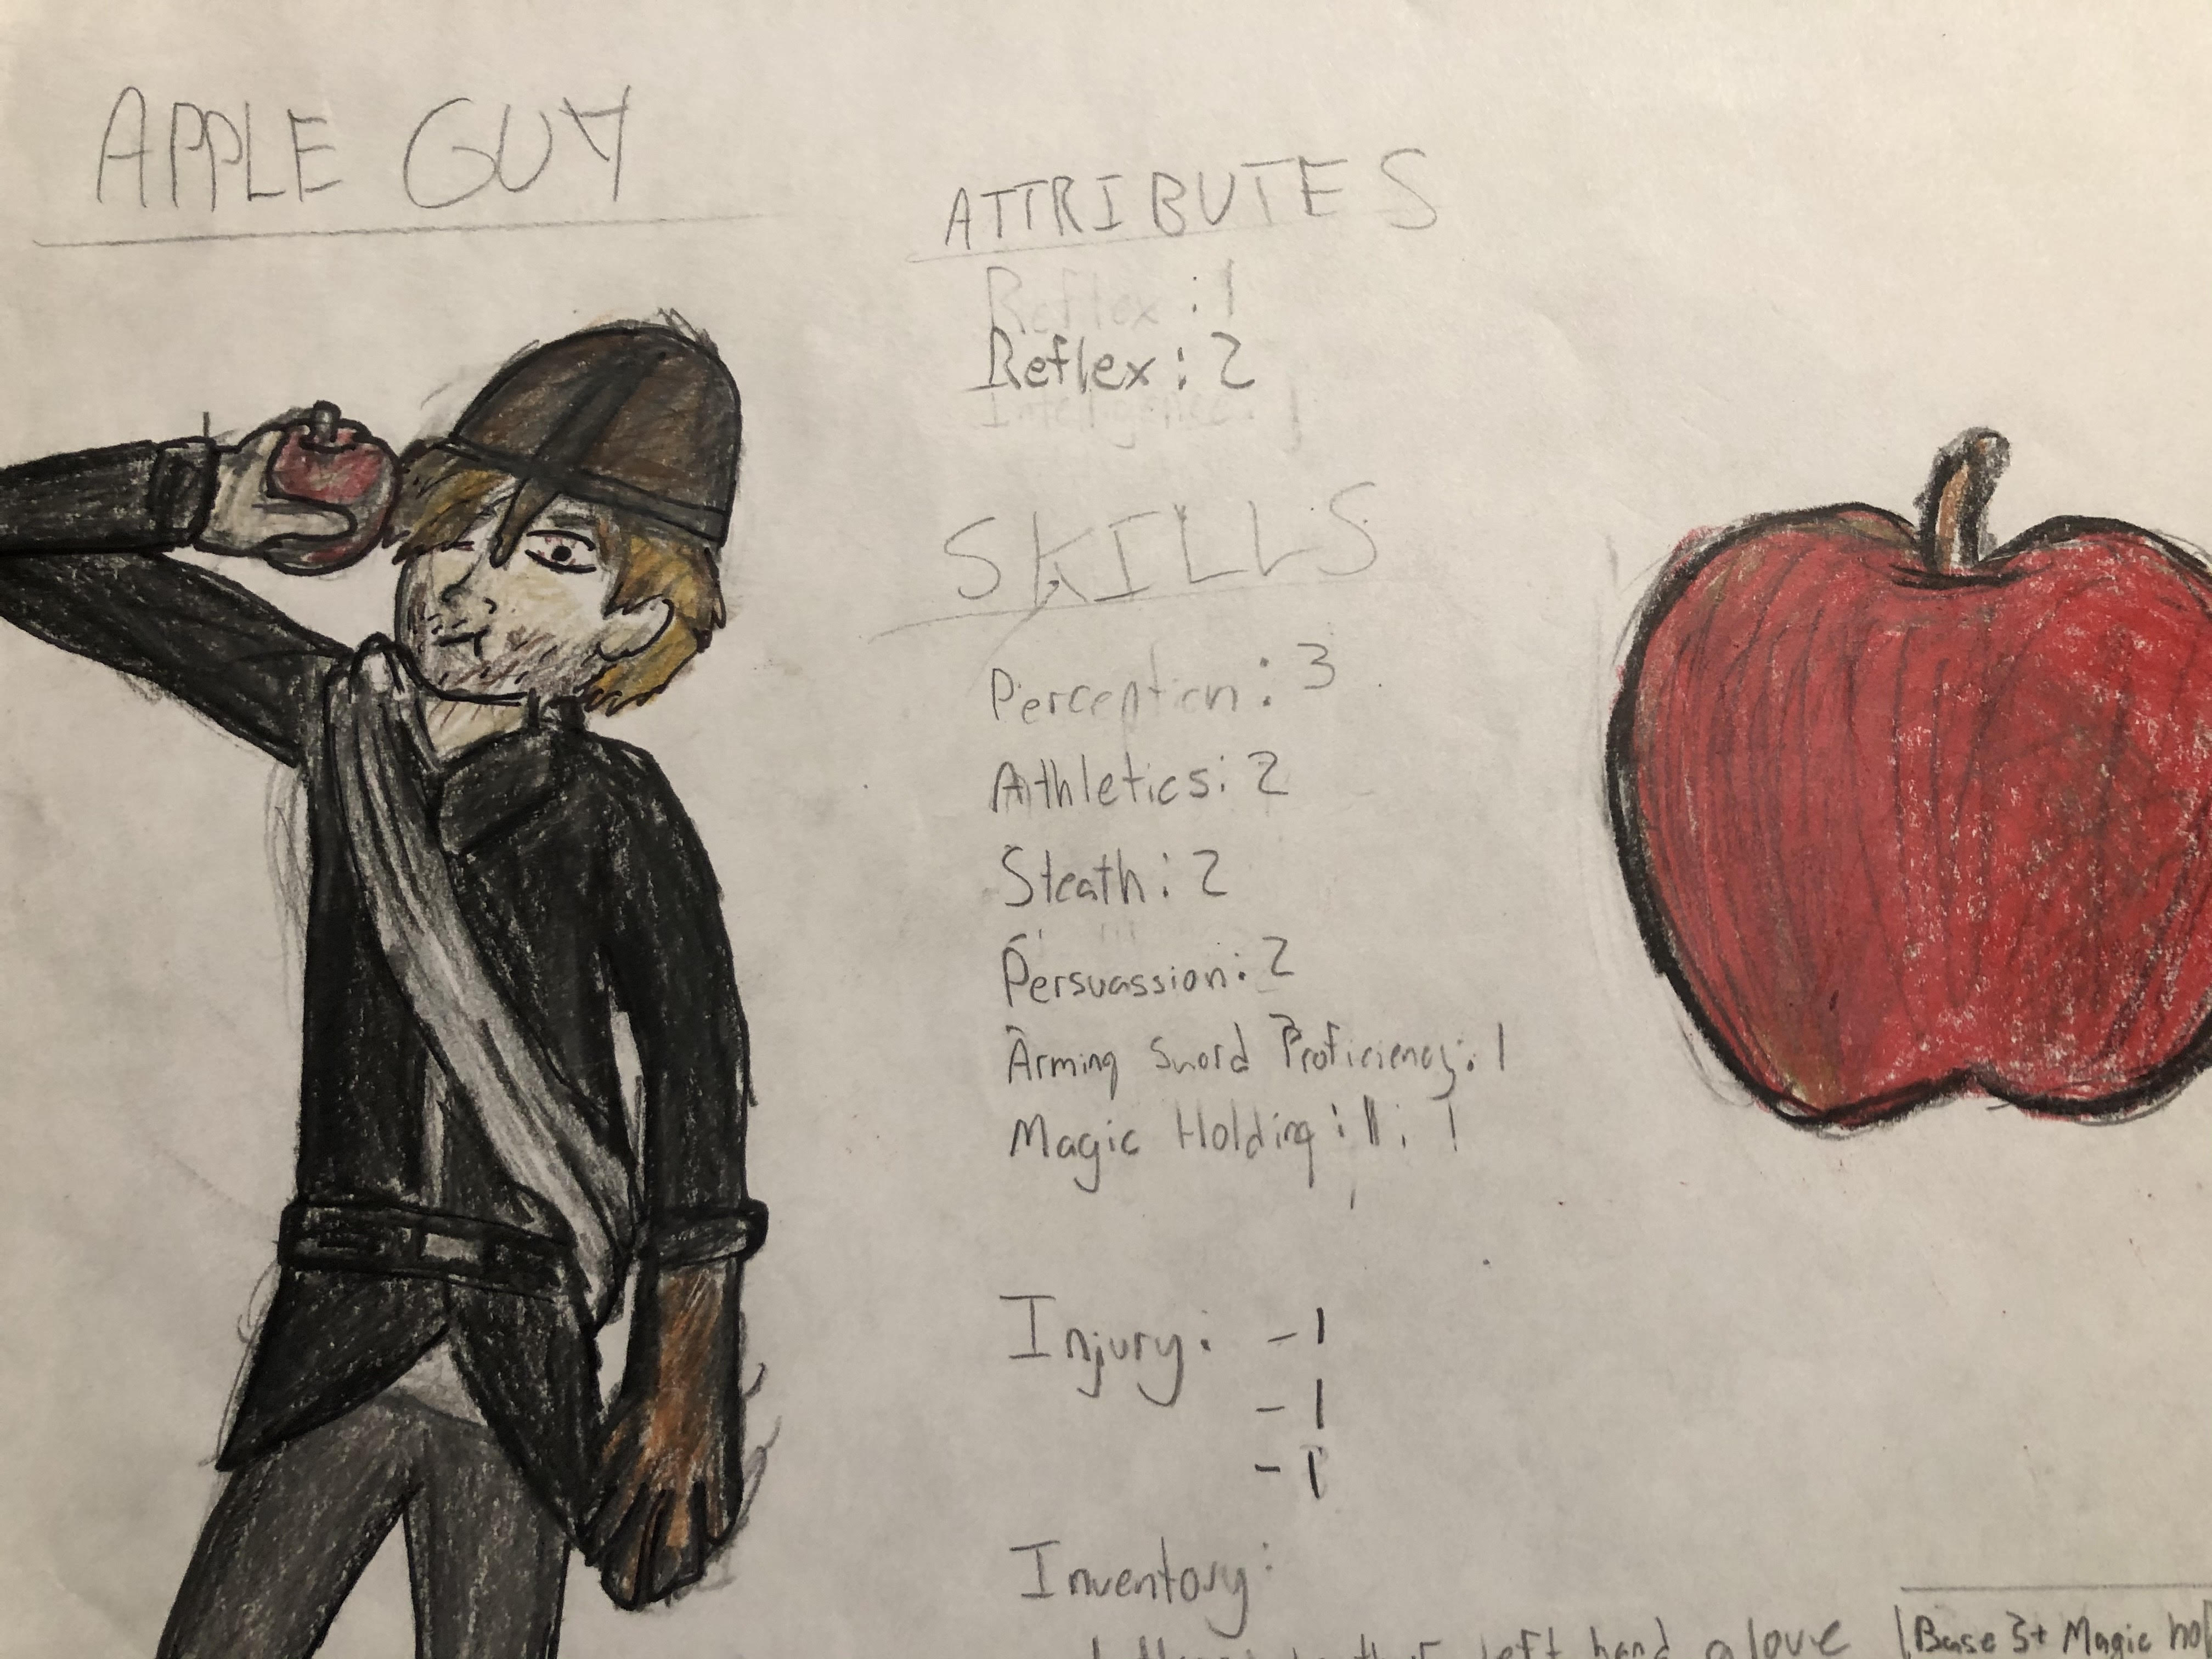 APPLE GUY
ATTRIBUTES
Reflex : 1
Reflex : 2
Intelligence : 1
SKILLS
Perception : 3
Athletics : 2
Steath : 2
Persuassion : 2
Arming Sword Proficiency : 1
Magic Holding : 1
Injury : -1
-1
-1
Inventory :
left hand glove
Base 3+ Magic hol